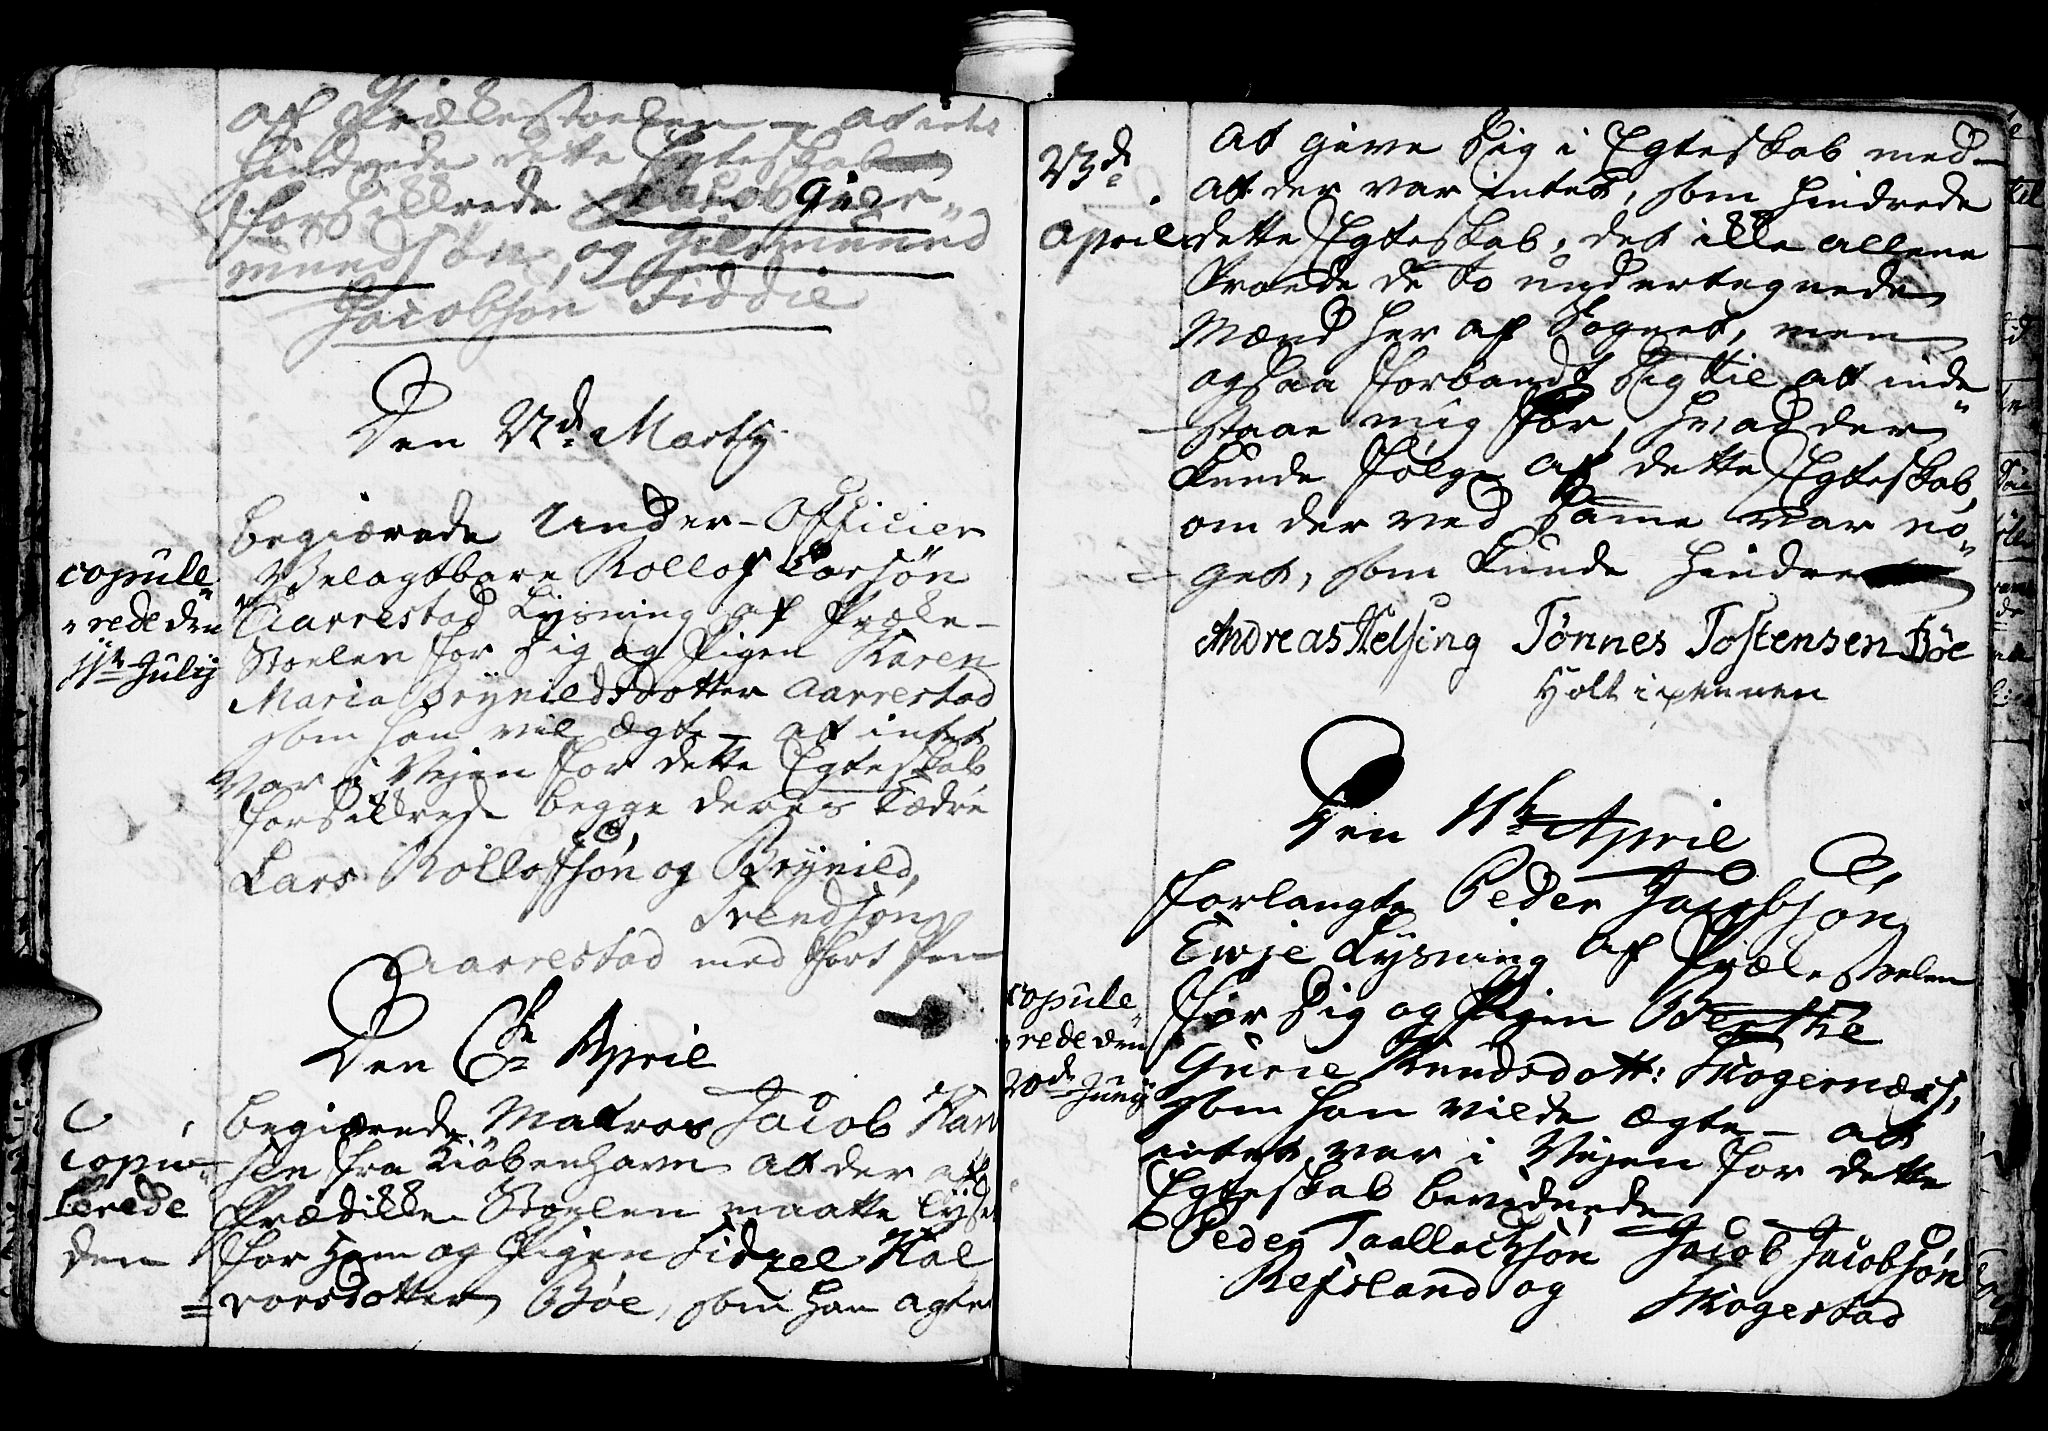 af Prækestoelen – at intet
hindrede dette Egteskab
forsikkrede Jacob Gier-
mundsøn, og Giermund
Jacobsøn Fiddie
Den 22d. Martij
begiærede Under-Officier
Velagtbare Rollof Larsøn
Aarrestad Lysning af Præke-
Stoelen for sig og Pigen Karen
Maria Brynildsdotter Aarrestad
som han vil ægte – at intet
var i Vejen for dette Egteskab
forsikkrede begge deres Fædre
Lars Rollofsøn og Brynild
Trendsøn
Aarrestad med ført Pen
copule-
rede den
11te Julij
Den 6te April
begiærede Matros Jacob Han
sen fra Kiøbenhavn at der af
Prædikke Stoelen maatte lyses
for ham og Pigen Sidzel Hal
vorsdotter Bøe, som han agter
copu-
lerede
den
23de
April
at give sig i Egteskab med –
at der var intet, som hindrede
dette Egteskab, det ikke allene
troede de to undertegnede
Mænd her af Sognet, men
ogsaa forbandt sig til at inde-
staae mig for, hvad der
kunde følge af dette Egteskab,
om der ved same var no-
get, som kunde hindre
Andreas Helsing Tønnes Tostensen Bøe
Holt i pennen
Den 11te April
forlangte Peder Jacobsøn
Ewje Lysning af Prækestoelen
for sig og Pigen Berthe
Gurie Knudsdott: Skogernæss,
som han vilde ægte – at
intet var i Vejen for dette
Egteskab bevidnede
Peder Taallacksøn Jacob Jacobsøn
Refsland og Skogestad
copule-
rede den
20de Junij